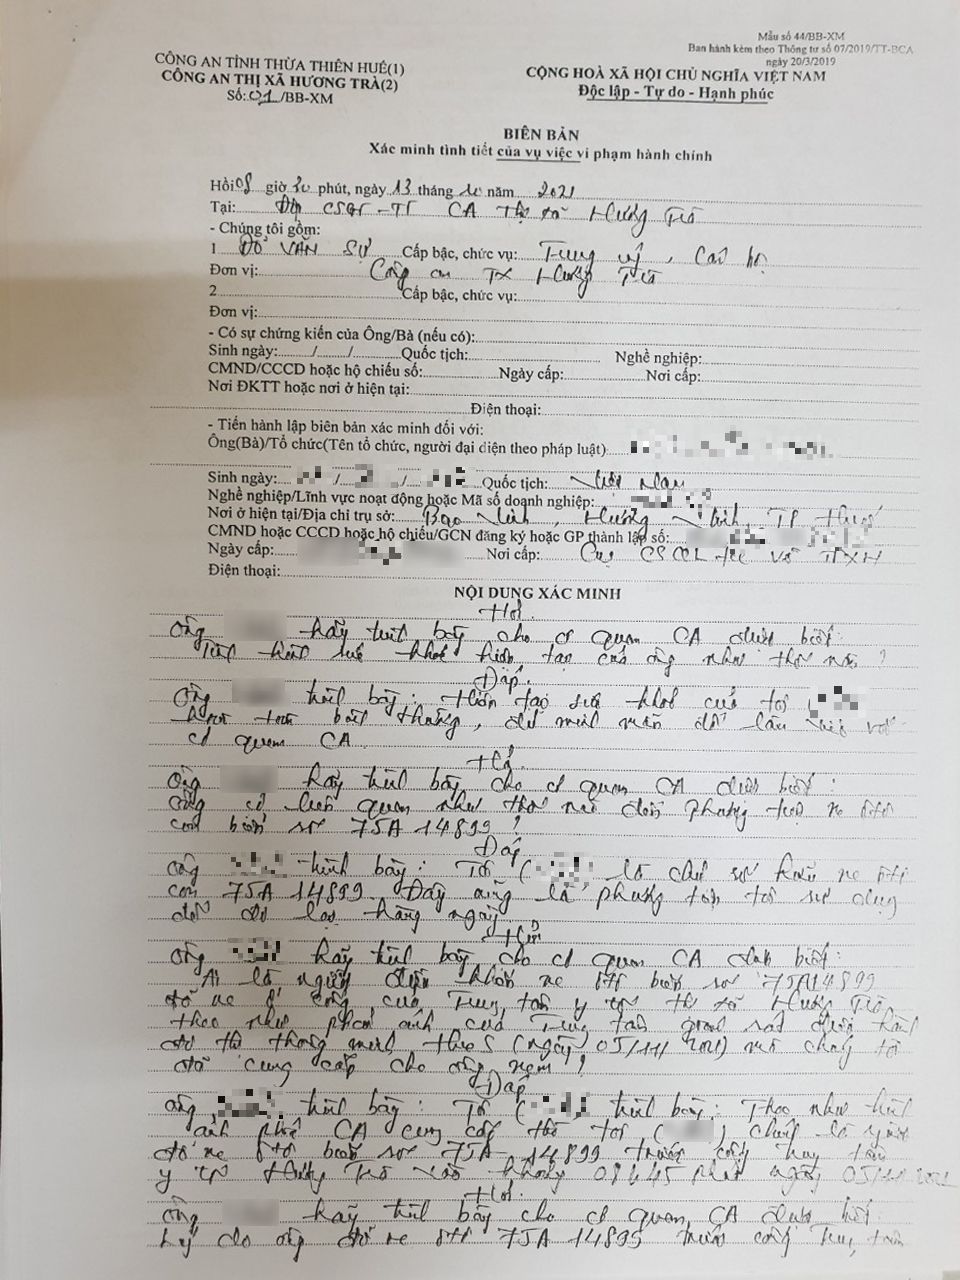 Mẫu số 44/BB-XM
Ban hành kèm theo Thông tư số 07/2019/TT-BCA
ngày 20/3/2019
CÔNG AN TỈNH THỪA THIÊN HUẾ(1)
CÔNG AN THỊ XÃ HƯƠNG TRÀ(2)
Số: 01 /BB-XM
CỘNG HOÀ XÃ HỘI CHỦ NGHĨA VIỆT NAM
Độc lập - Tự do - Hạnh phúc
BIÊN BẢN
Xác minh tình tiết của vụ việc vi phạm hành chính
Hồi 08 giờ 30 phút, ngày 13 tháng năm 2021
Tại: Đội CSGT-TT CA Thị xã Hương Trà
- Chúng tôi gồm:
1 ĐỖ VĂN SỰ Cấp bậc, chức vụ: Trung uý, Cán bộ
Đơn vị: Công an TX Hương Trà
2 Cấp bậc, chức vụ:
Đơn vị:
- Có sự chứng kiến của Ông/Bà (nếu có):
Sinh ngày: / / Quốc tịch: Nghề nghiệp:
CMND/CCCD hoặc hộ chiếu số: Ngày cấp: Nơi cấp:
Nơi ĐKTT hoặc nơi ở hiện tại:
Điện thoại:
- Tiến hành lập biên bản xác minh đối với:
Ông(Bà)/Tổ chức(Tên tổ chức, người đại diện theo pháp luật)
Sinh ngày: / / Quốc tịch: Việt Nam
Nghề nghiệp/Lĩnh vực hoạt động hoặc Mã số doanh nghiệp:
Nơi ở hiện tại/Địa chỉ trụ sở: Bao Vinh, Hương Vinh, TP Huế
CMND hoặc CCCD hoặc hộ chiếu/GCN đăng ký hoặc GP thành lập số:
Ngày cấp: Nơi cấp: Cục CSQL HC về TTXH
Điện thoại:
NỘI DUNG XÁC MINH
Hỏi
Ông hãy trình bày cho cơ quan CA được biết:
Tình hình sức khoẻ hiện tại của ông như thế nào?
Đáp
Ông trình bày: Hiện tại sức khoẻ của tôi (
hoàn toàn bình thường, đủ minh mẫn để làm việc với
cơ quan CA
Hỏi
Ông hãy trình bày cho cơ quan CA được biết:
Ông có liên quan như thế nào đến phương tiện xe ôtô
con biển số 75A 14899?
Đáp
Ông trình bày: Tôi ( là chủ sở hữu xe ôtô
con 75A 14899. Đây cũng là phương tiện tôi sử dụng
để đi lại hằng ngày
Hỏi
Ông hãy trình bày cho cơ quan CA được biết:
Ai là người điều khiển xe ôtô biển số 75A14899
đỗ xe ở cổng của Trung tâm y tế thị xã Hương Trà,
theo như phản ánh của Trung tâm giám sát điều hành
đô thị thông minh (ngày 05/11/2021) mà chúng tôi
đã cung cấp cho ông xem?
Đáp
Ông trình bày: Tôi ( trình bày: Theo như hình
ảnh phía CA cung cấp thì tôi ( ) chính là người
đỗ xe ôtô biển số 75A-14899 trước cổng Trung tâm
y tế Hương Trà vào khoảng 08h45 phút ngày 05/11/2021
Hỏi
Ông hãy trình bày cho cơ quan CA được biết:
Lý do ông đỗ xe ôtô 75A 14899 trước cổng Trung tâm